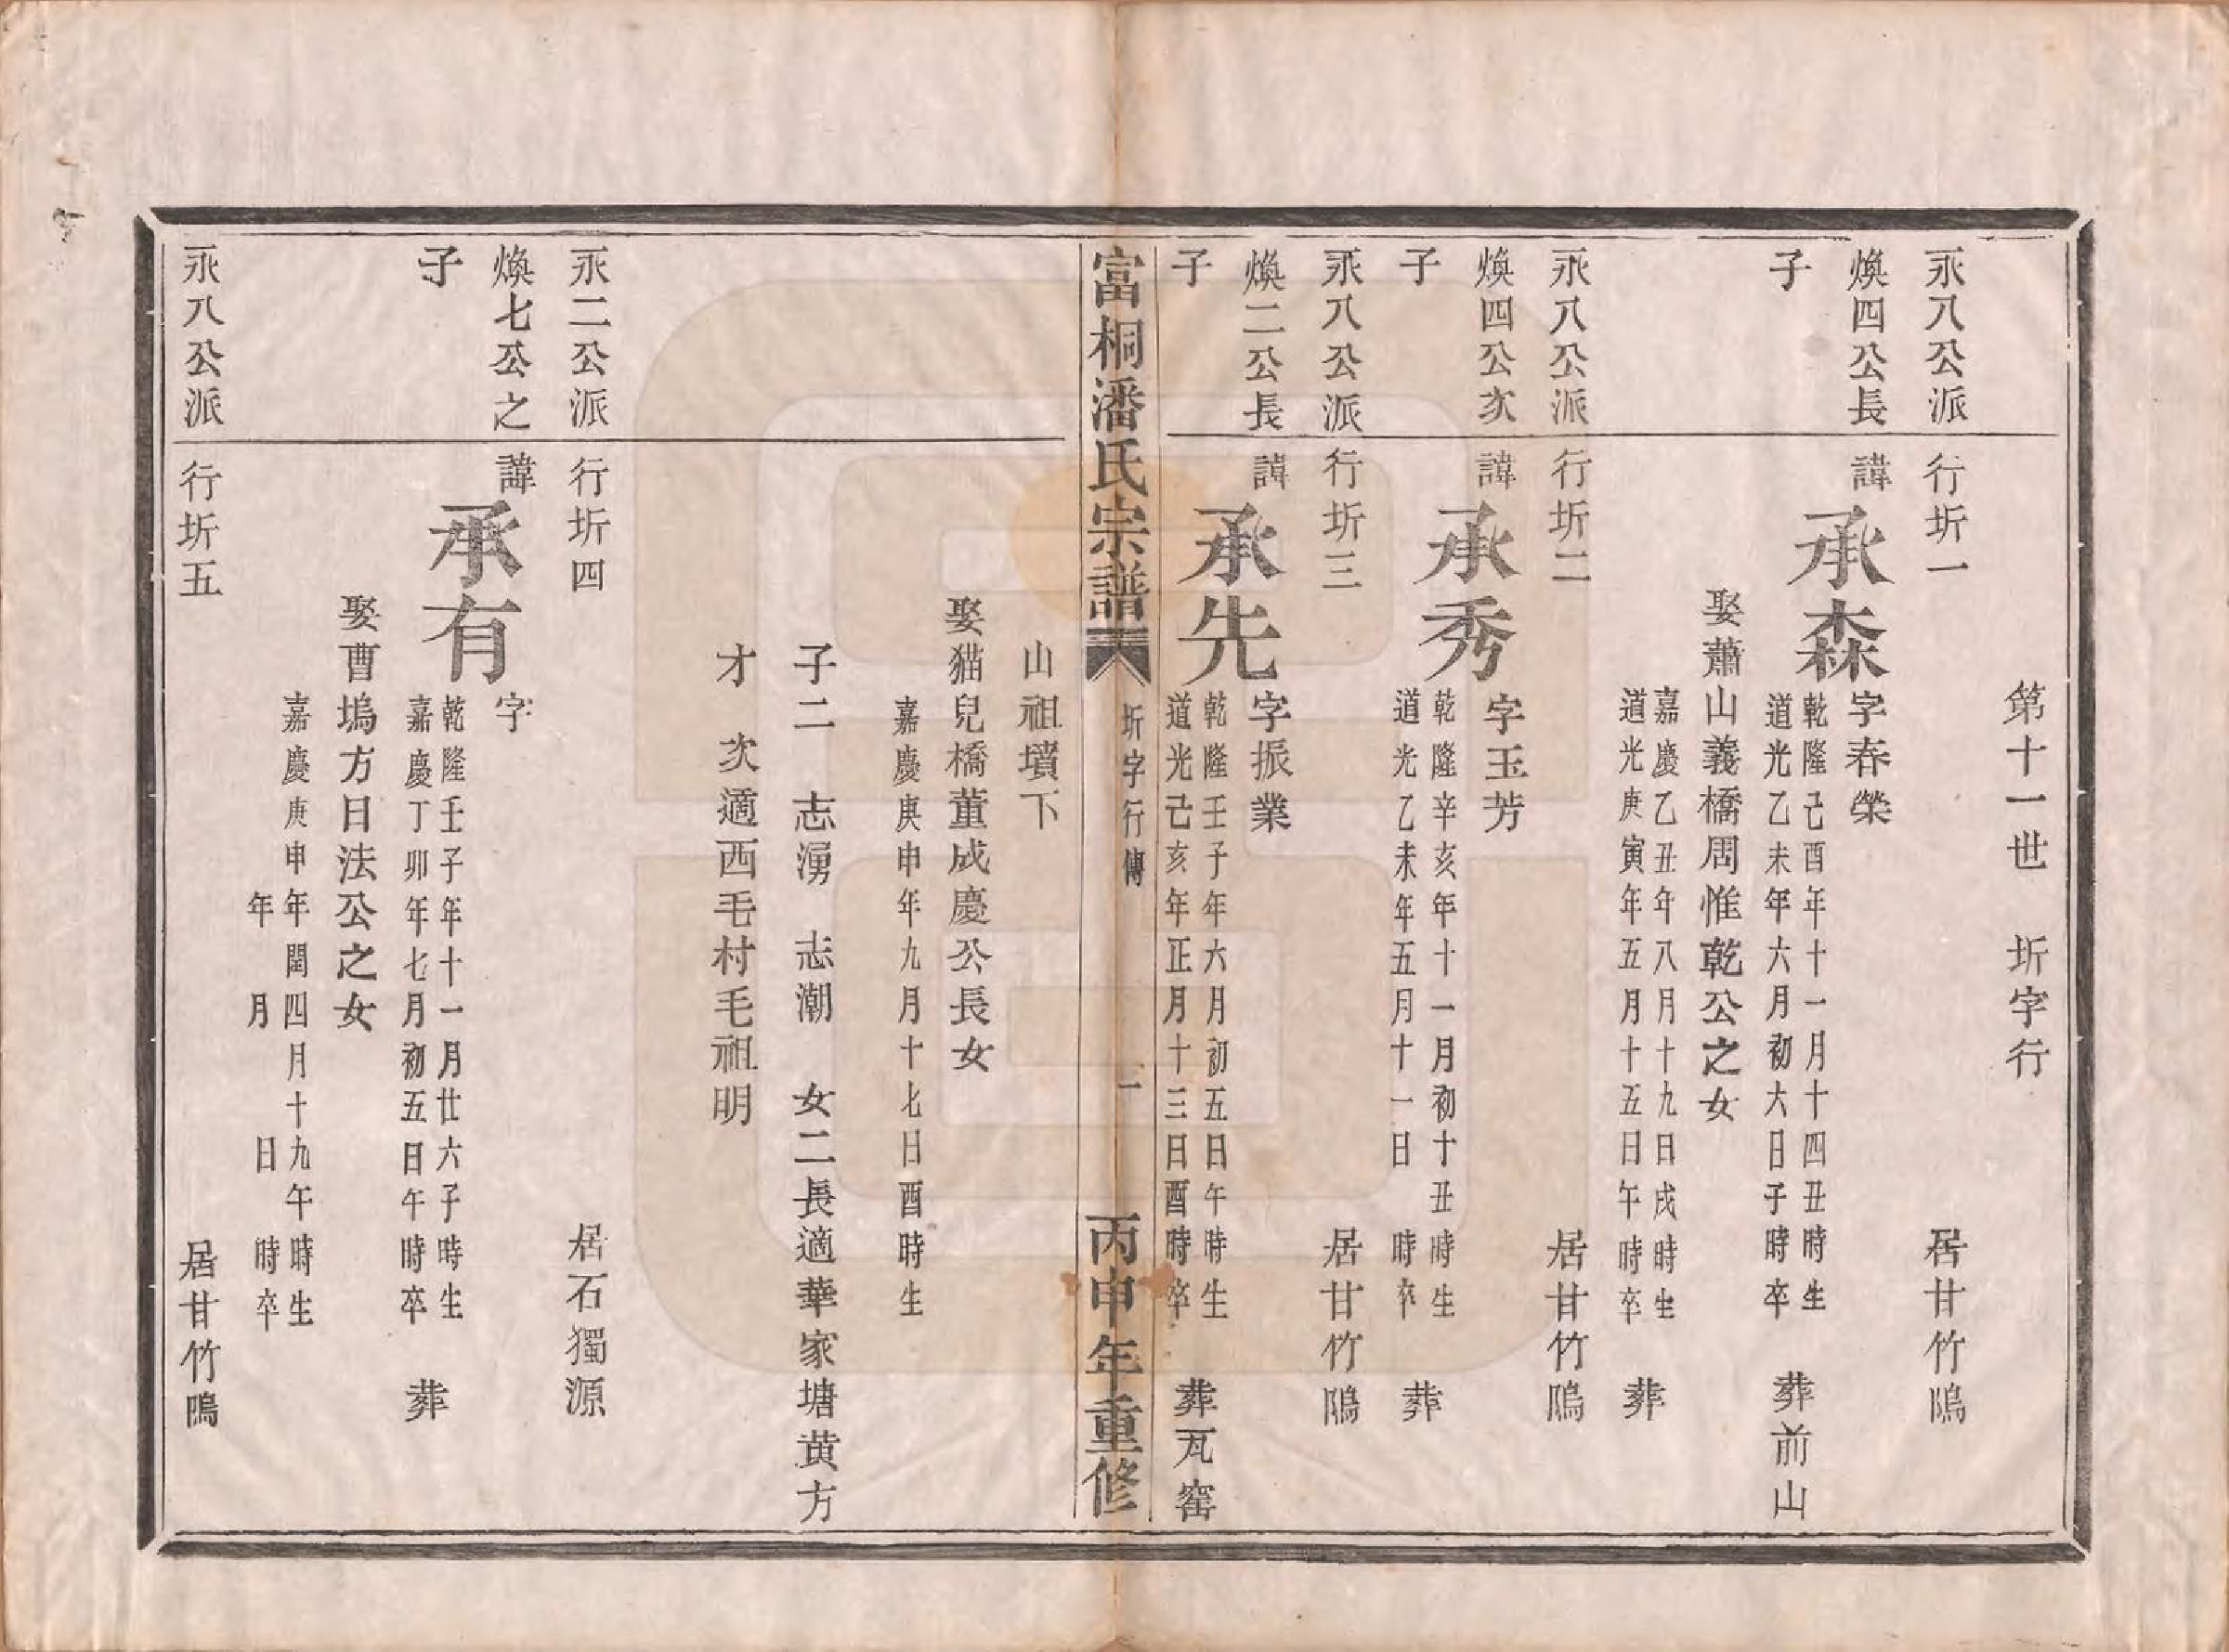 第十一世　圻字行
永八公派　行圻一　居甘竹隖
煥四公長　諱
子
承森
字春榮
乾隆己酉年十一月十四丑時生
道光乙未年六月初六日子時卒　葬前山
娶蕭山義橋周惟乾公之女
嘉慶乙丑年八月十九日戌時生
道光庚寅年五月十五日午時卒　葬
永八公派　行圻二　居甘竹隖
煥四公次　諱
子
承秀
字玉芳
乾隆辛亥年十一月初十丑時生
道光乙未年五月十一日　時卒　葬
永八公派　行圻三　居甘竹隖
煥二公長　諱
子
承先
字振業
乾隆壬子年六月初五日午時生
道光己亥年正月十三日酉時卒　葬瓦窰
富桐潘氏宗譜　圻字行傳　一　丙申年重修
山祖墳下
娶猫兒橋董成慶公長女
嘉慶庚申年九月十七日酉時生
子二　志湧　志潮　女二長適華家塘黄方
才　次適西毛村毛祖明
永二公派　行圻四　居石獨源
煥七公之　諱
子
承有
字
乾隆壬子年十一月廿六子時生
嘉慶丁卯年七月初五日午時卒　葬
娶曹塢方日法公之女
嘉慶庚申年閏四月十九午時生
年　月　日　時卒
永八公派　行圻五　居甘竹隖